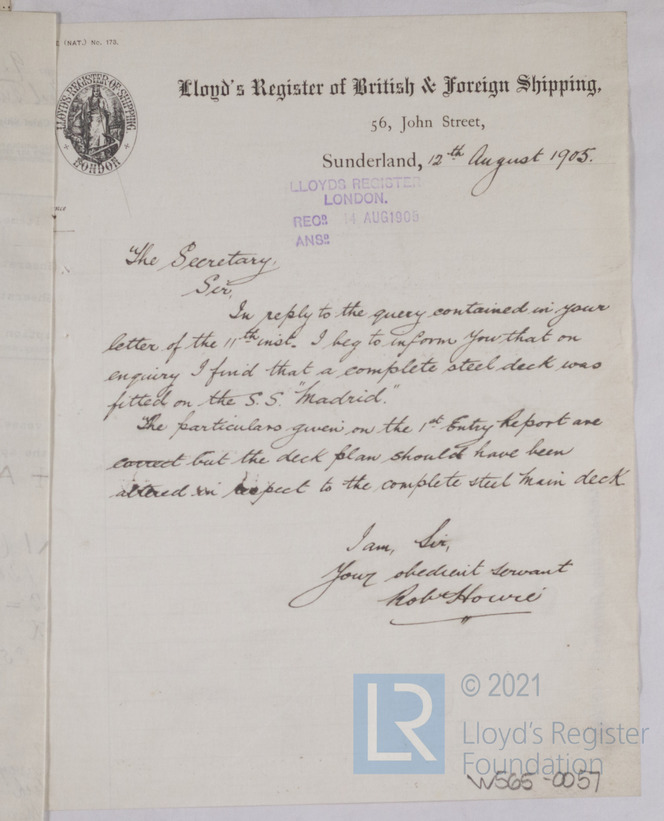 (NAT.) No. 173.
LLOYD'S REGISTER OF SHIPPING.
LONDON
Lloyd's Register of British & Foreign Shipping,
56, John Street,
Sunderland, 12th August 1905.
LLOYDS REGISTER
LONDON.
RECD 14 AUG 1905
ANSD
The Secretary,
Sir,
In reply to the query contained in your
letter of the 11th inst. I beg to inform you that on
enquiry I find that a complete steel deck was
fitted on the S.S. "Madrid."
The particulars given on the 1st Entry Report are
correct but the deck plan should have been
altered in respect to the complete steel main deck
I am, Sir,
Your obedient servant
Robt Howie
LR
© 2021
Lloyd's Register
Foundation
W565-0057